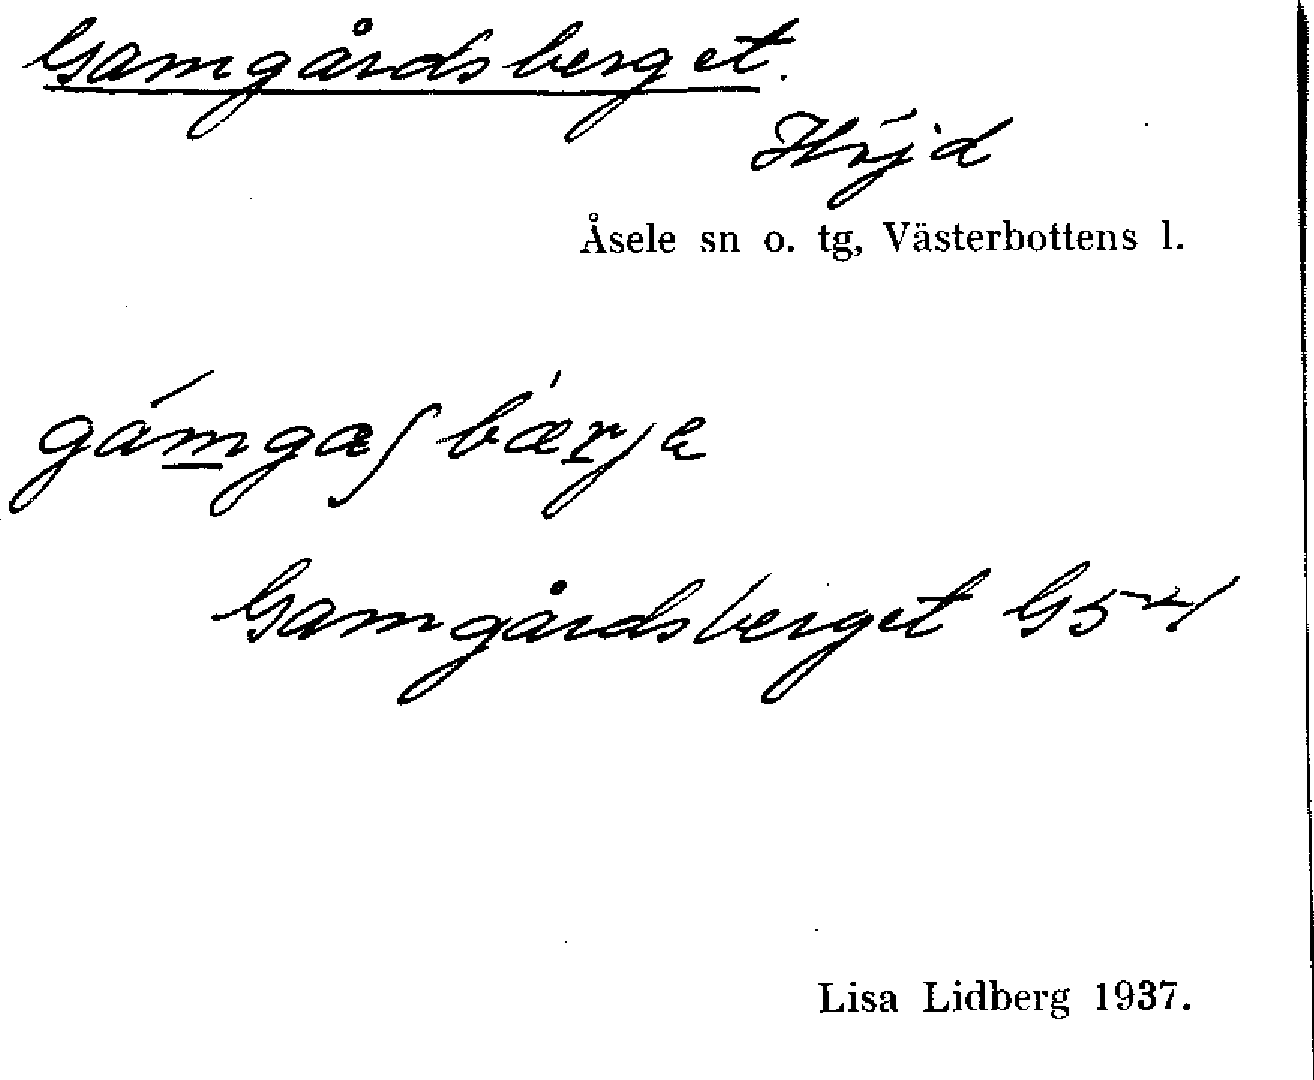 Gamgårdsberget.
Höjd
Åsele sn o. tg, Västerbottens l.
gámgæʃ bærje
Gamgårdsberget G54
Lisa Lidberg 1937.